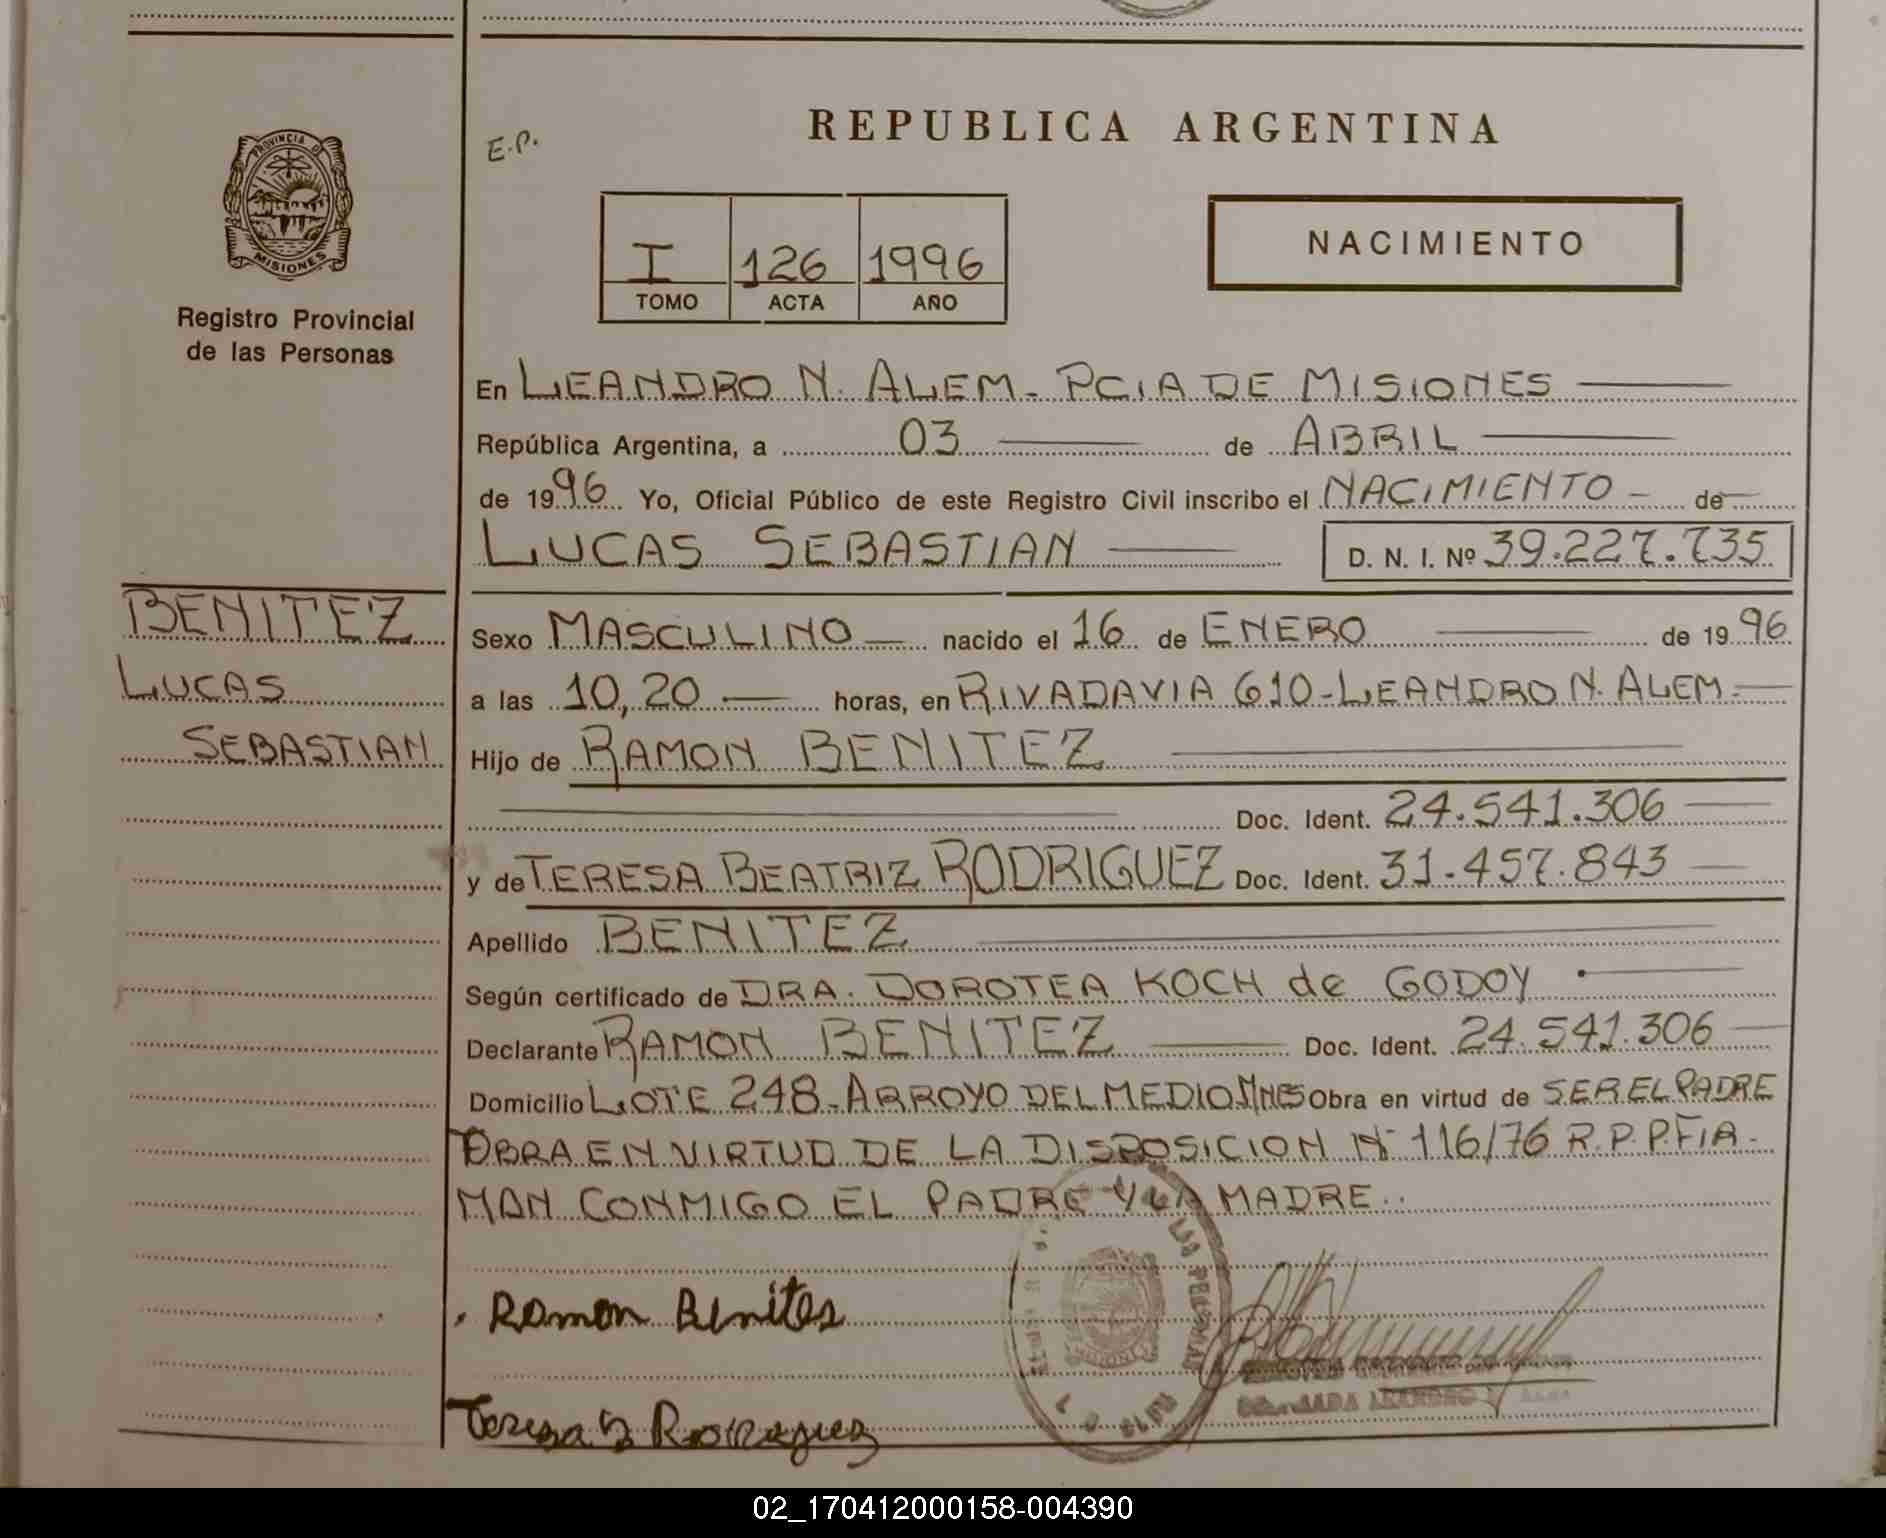 REPUBLICA ARGENTINA
E.P.
PROVINCIA D
MISIONES
Registro Provincial
de las Personas
I 126 1996
TOMO ACTA AÑO
NACIMIENTO
En LEANDRO N. ALEM - PCIA DE MISIONES
República Argentina, a 03 de ABRIL
de 1996 Yo, Oficial Público de este Registro Civil inscribo el NACIMIENTO de
LUCAS SEBASTIAN D. N. I. Nº 39.227.735
BENITEZ
LUCAS
SEBASTIAN
Sexo MASCULINO nacido el 16 de ENERO de 1996
a las 10,20 horas, en RIVADAVIA 610 - LEANDRO N. ALEM -
Hijo de RAMON BENITEZ
Doc. Ident. 24.541.306
y de TERESA BEATRIZ RODRIGUEZ Doc. Ident. 31.457.843
Apellido BENITEZ
Según certificado de DRA. DOROTEA KOCH de GODOY
Declarante RAMON BENITEZ Doc. Ident. 24.541.306
Domicilio LOTE 248 - ARROYO DEL MEDIO MNES Obra en virtud de SER EL PADRE
OBRA EN VIRTUD DE LA DISPOSICION Nº 116/76 R.P.P. FIR-
MAN CONMIGO EL PADRE Y LA MADRE..
Ramon Benites
Teresa B Rodriguez
LAS PERSONAS
02_170412000158-004390